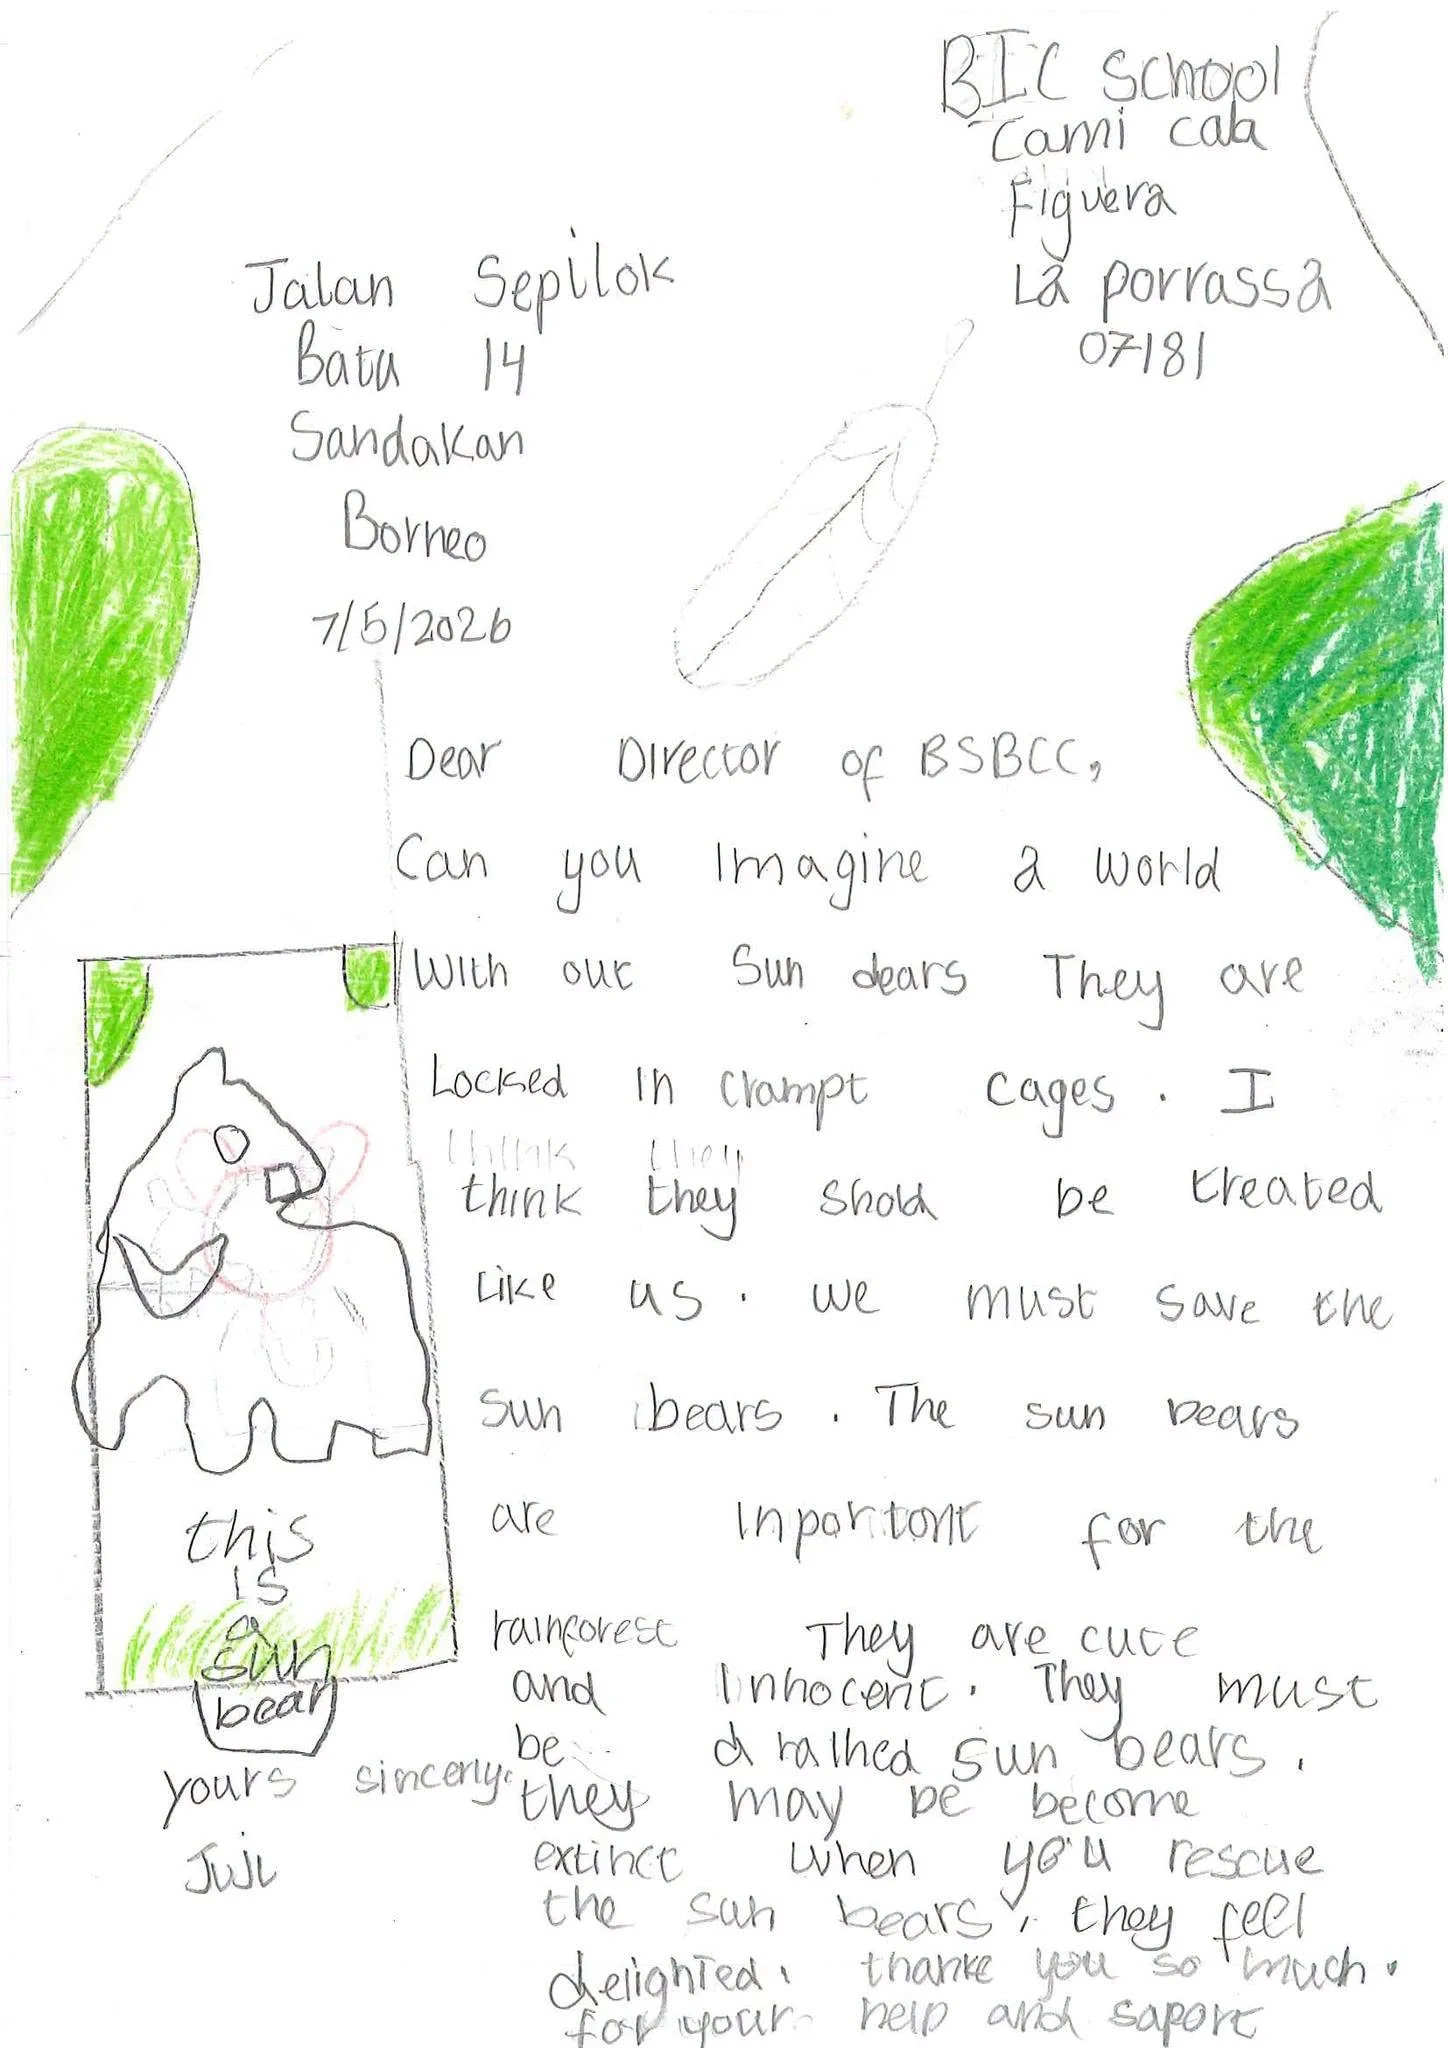 BIC School
Cami cala
Figuera
La porrassa
07181
Jalan Sepilok
Batu 14
Sandakan
Borneo
7/5/2026
Dear Director of BSBCC,
Can you Imagine a world
With out Sun dears They are
Locked in crampt cages. I
think they
think they shold be treated
Like us. we must save the
sun bears. The sun bears
are inportont for the
rainforest They are cute
and innocent. They must
be sun bears.
they may be become
extinct when you rescue
the sun bears, they feel
delighted. thanke you so much.
for your help and saport
this
is
a
sun
bear
yours sincerly.
Juju